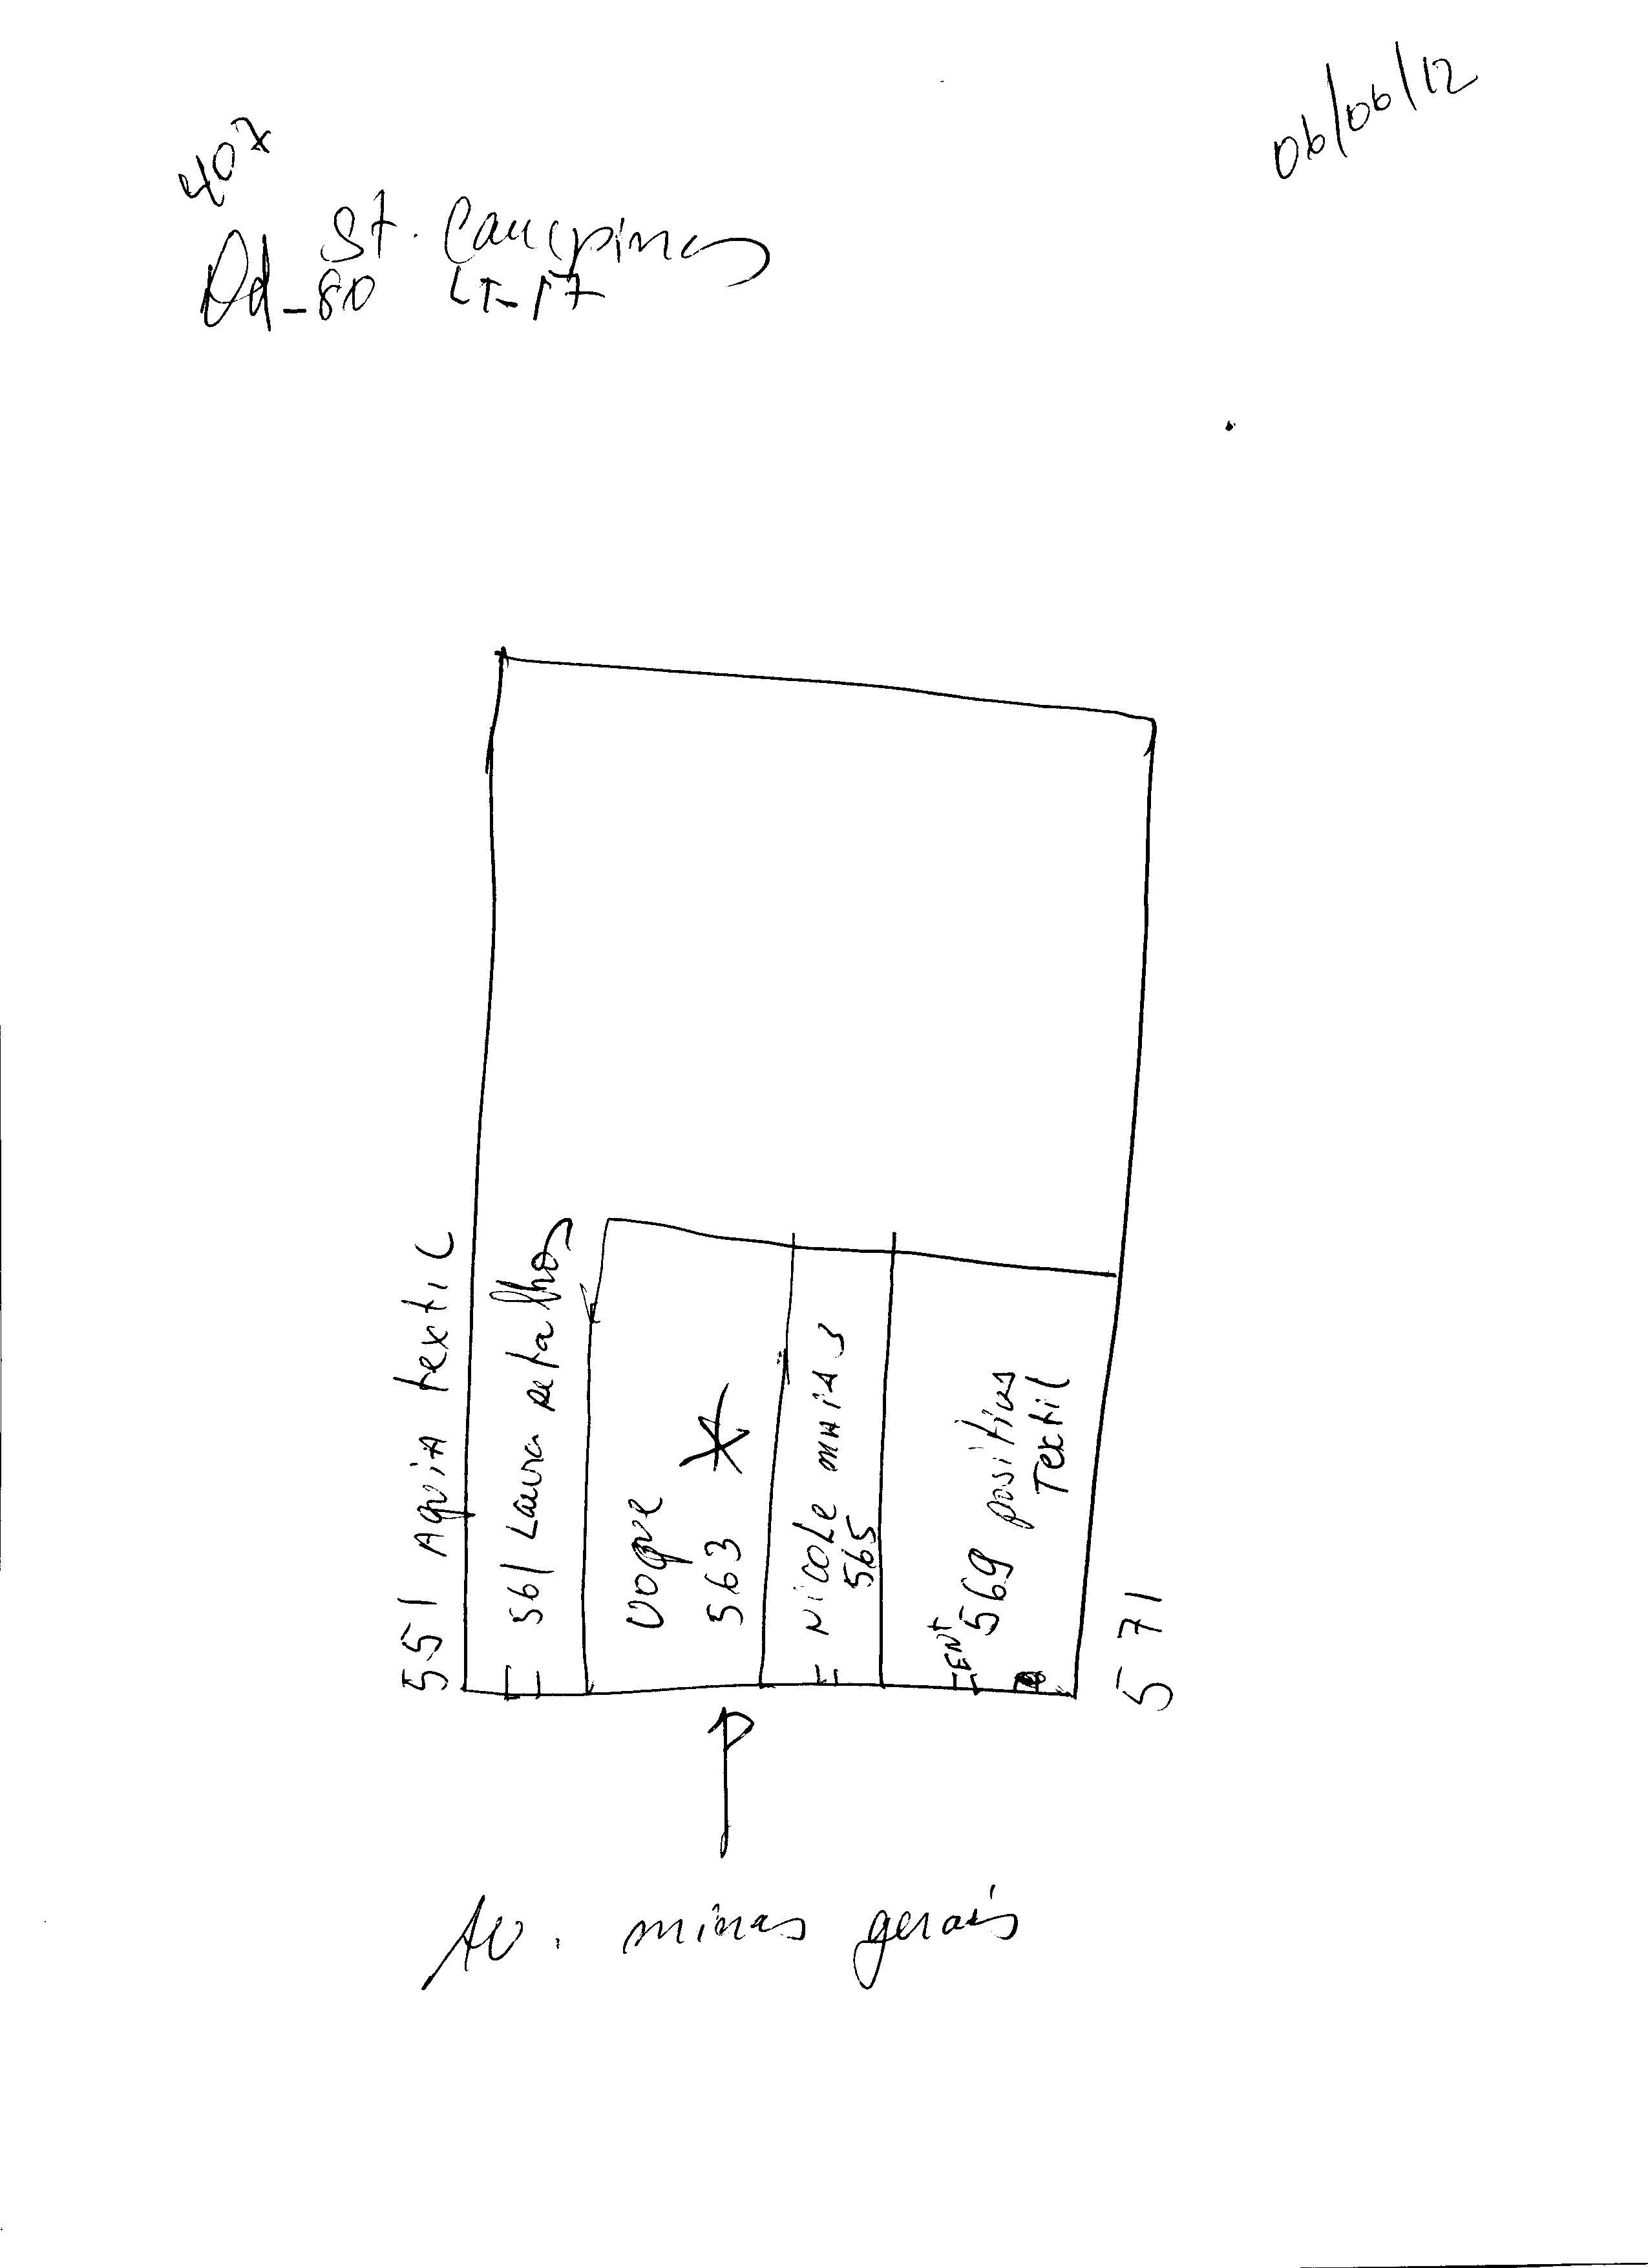 407
06/06/12
St. Campinas
Qd-80 LT-17
551 Aguia textil
561 Laura retalhos
Vogue
563
Nicole mais
565
ENT
569 positius
Textil
571
Av. minas gerais